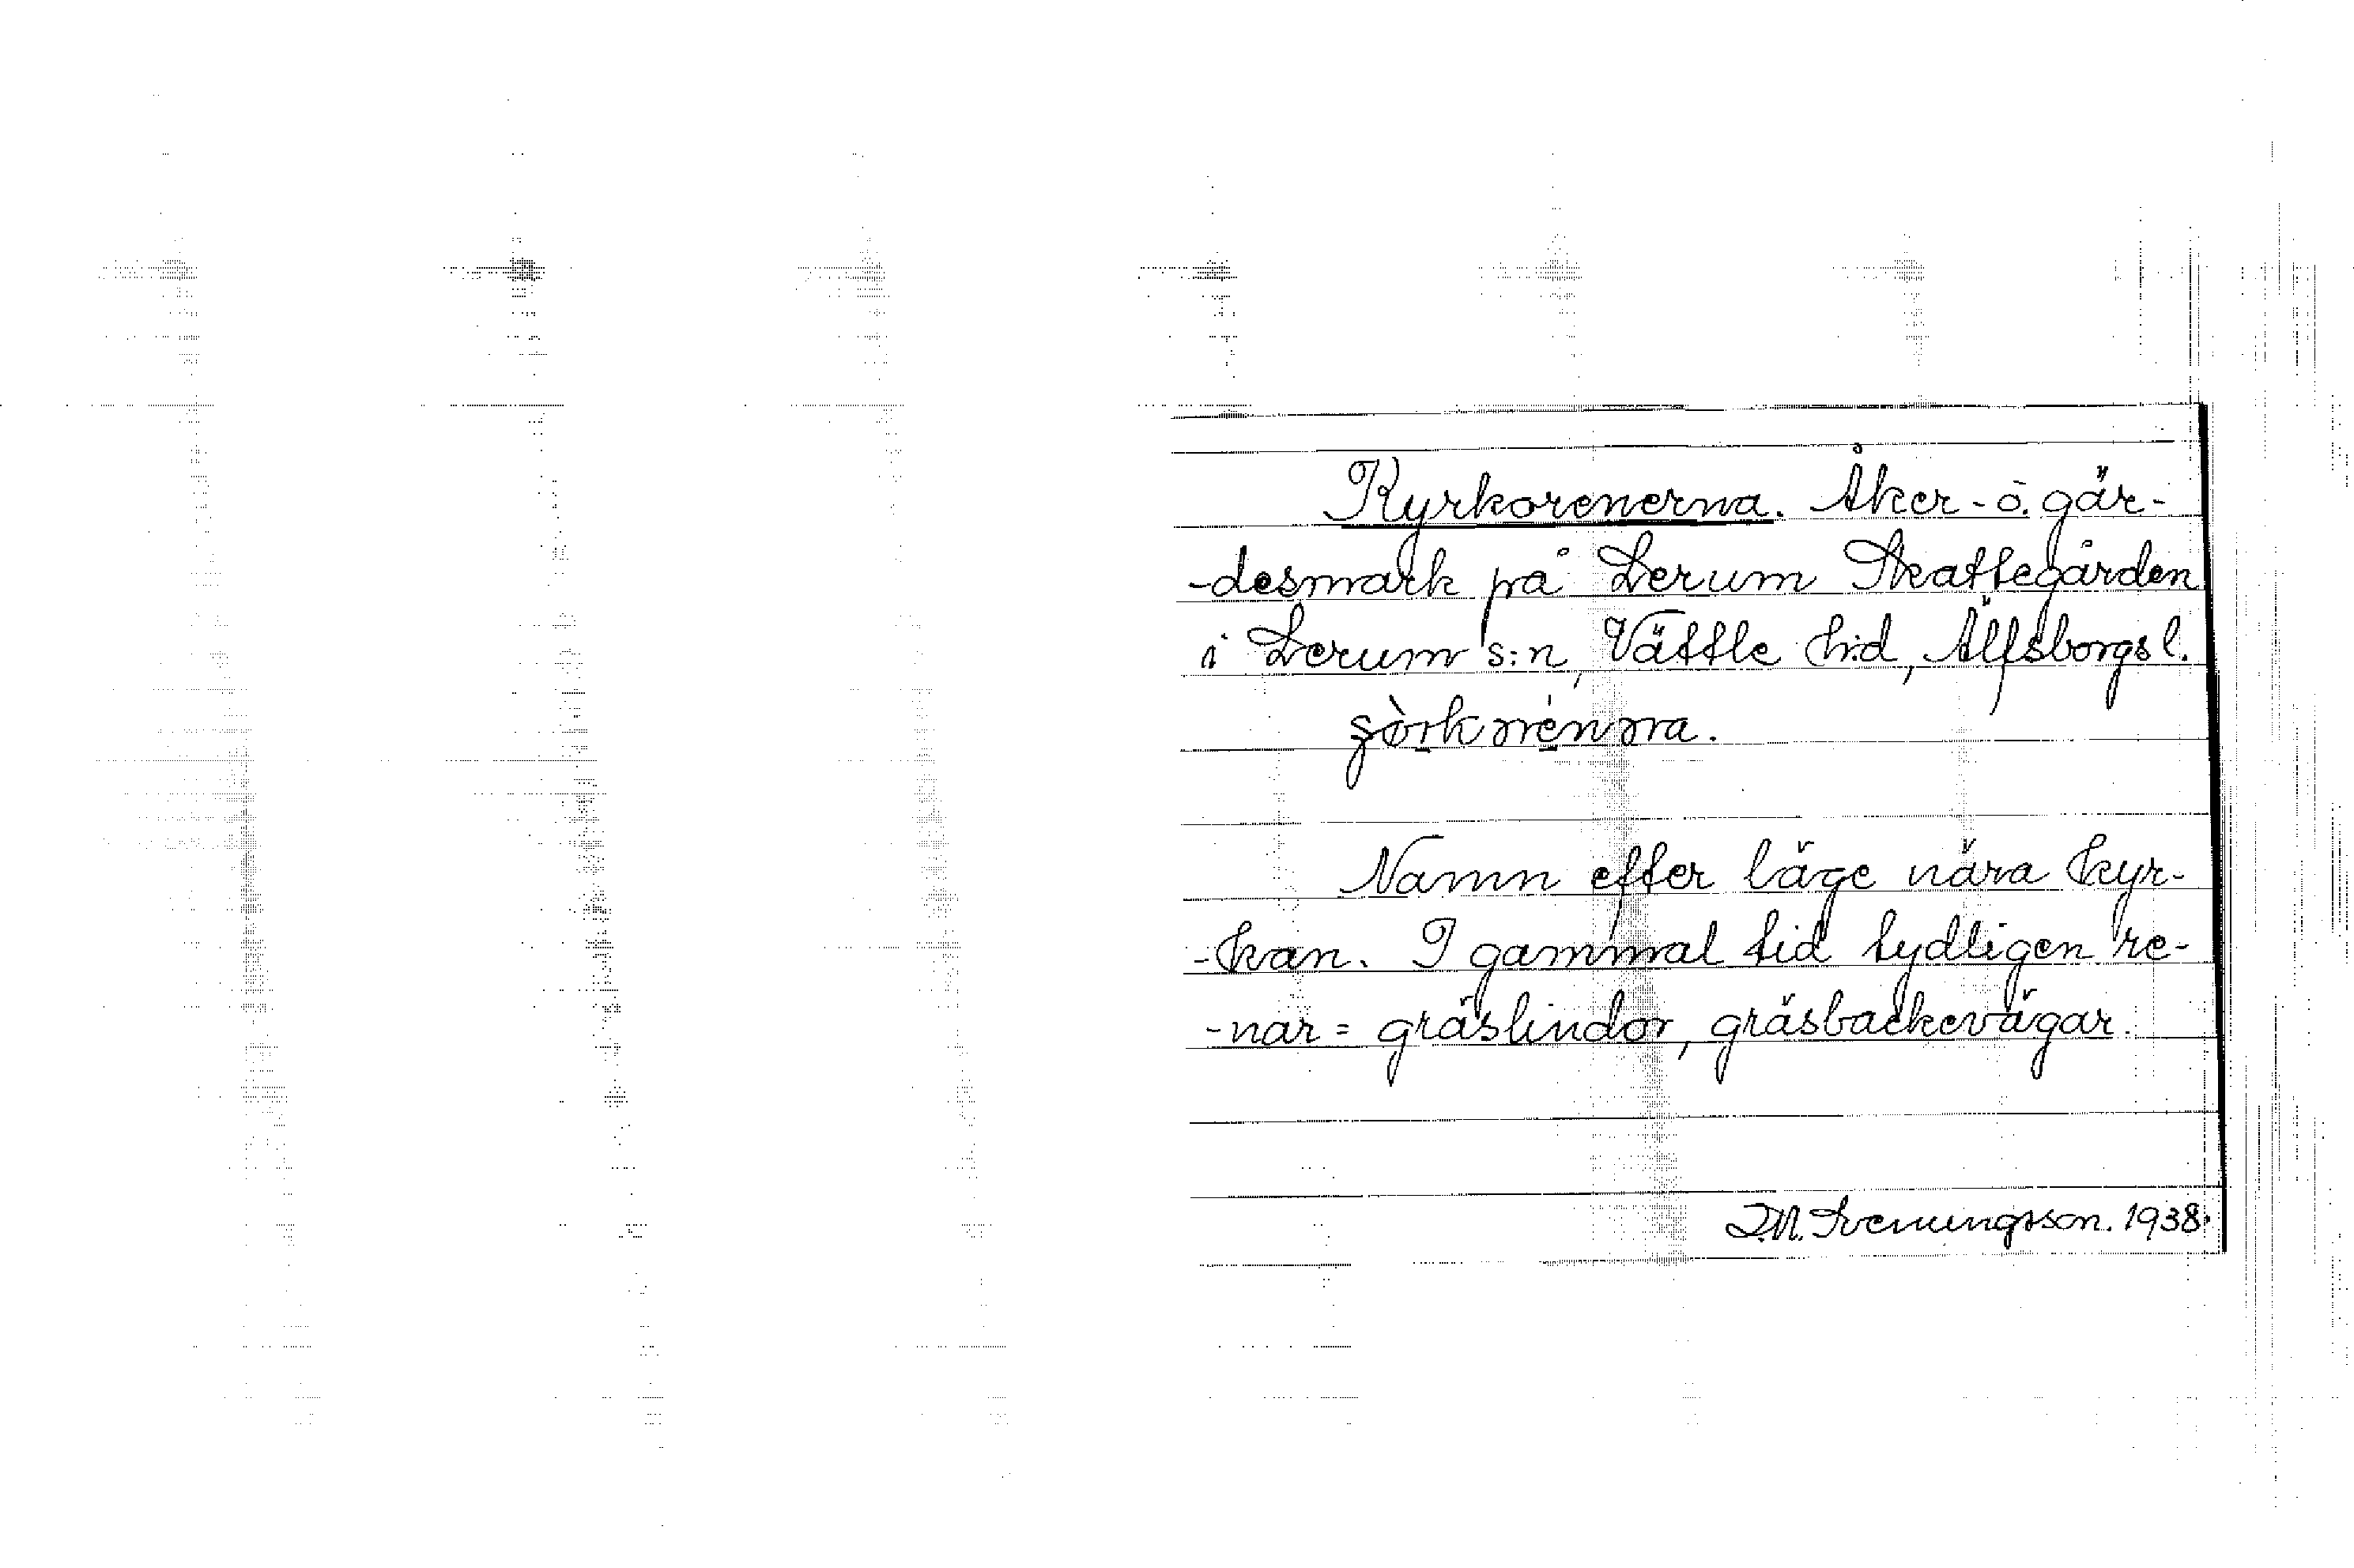 Kyrkorenerna. Åker- o. gär-
-desmark på Lerum Skattegården
i Lerum s:n, Vättle h:d, Älfsborgs l.
Namn efter läge nära kyr-
-kan. I gammal tid tydligen re-
-nar = gräslindor, gräsbackevägar.
1938.